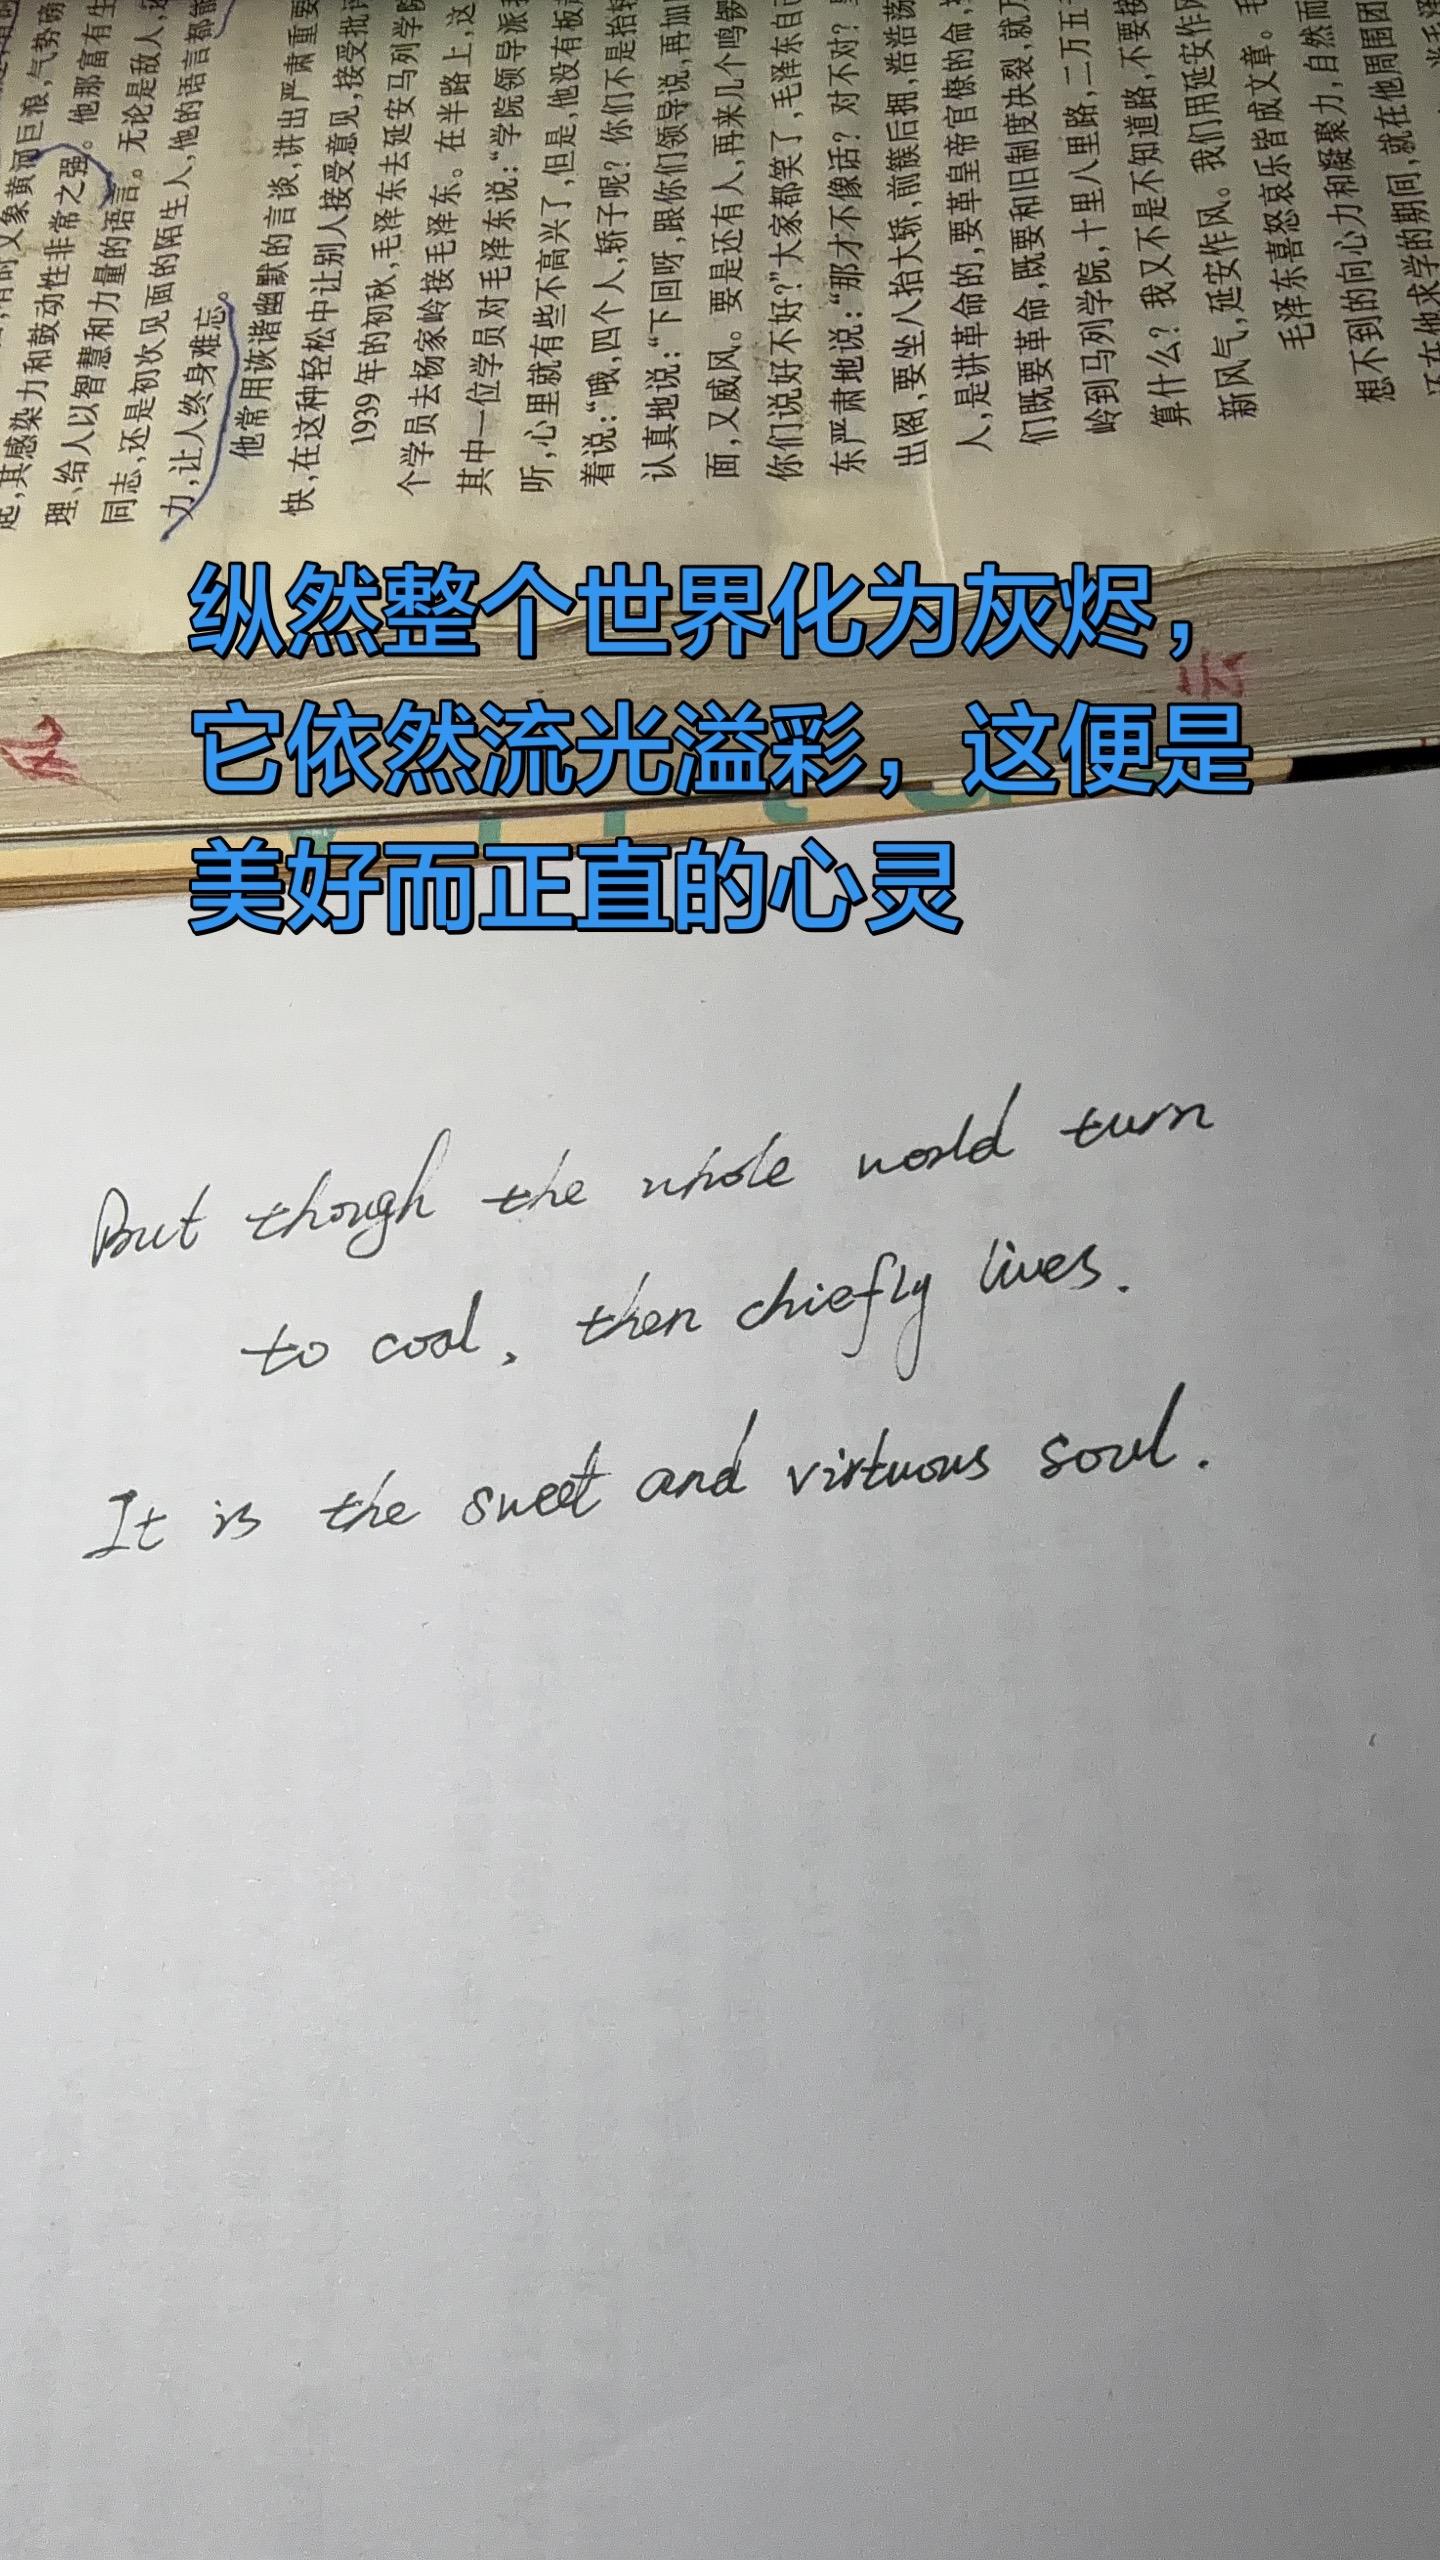 起,其感染力和鼓动性非常之强。他那富有生
理、给人以智慧和力量的语言。无论是敌人,还
同志,还是初次见面的陌生人,他的语言都能
力,让人终身难忘。
他常用诙谐幽默的言谈,讲出严肃重要
快,在这种轻松中让别人接受意见,接受批评
1939年的初秋,毛泽东去延安马列学院
个学员去杨家岭接毛泽东。在半路上,这
其中一位学员对毛泽东说:“学院领导派我
听,心里就有些不高兴了,但是,他没有板起
着说:“哦,四个人,轿子呢?你们不是抬轿
认真地说:“下回呀,跟你们领导说,再加四
面,又威风。要是还有人,再来几个鸣锣
你们说好不好?”大家都笑了,毛泽东自己
东严肃地说:“那才不像话?对不对?
出阁,要坐八抬大轿,前簇后拥,浩浩荡
人,是讲革命的,要革皇帝官僚的命,
们既要革命,既要和旧制度决裂,就万
岭到马列学院,十里八里路,二万五千
算什么?我又不是不知道路,不要接
新风气,延安作风。我们用延安作风
毛泽东喜怒哀乐皆成文章。毛
想不到的向心力和凝聚力,自然而
还在他求学的期间,就在他周围团
风
云
纵然整个世界化为灰烬,
它依然流光溢彩，这便是
美好而正直的心灵
But though the whole world turn
to coal, then chiefly lives.
It is the sweet and virtuous soul.